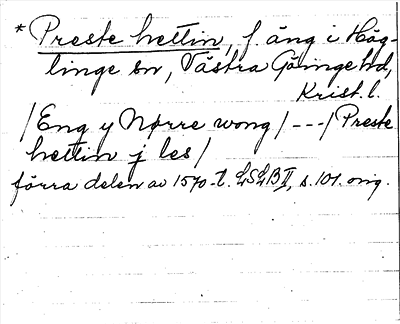 * Preste hettin, f. äng i Häg-
linge sn, Västra Göinge hd,
Krist. l.
/Eng y Nørre wong/ ---/Preste
hettin j les/
förra delen av 1570-t. LSLB II, s. 101. orig.